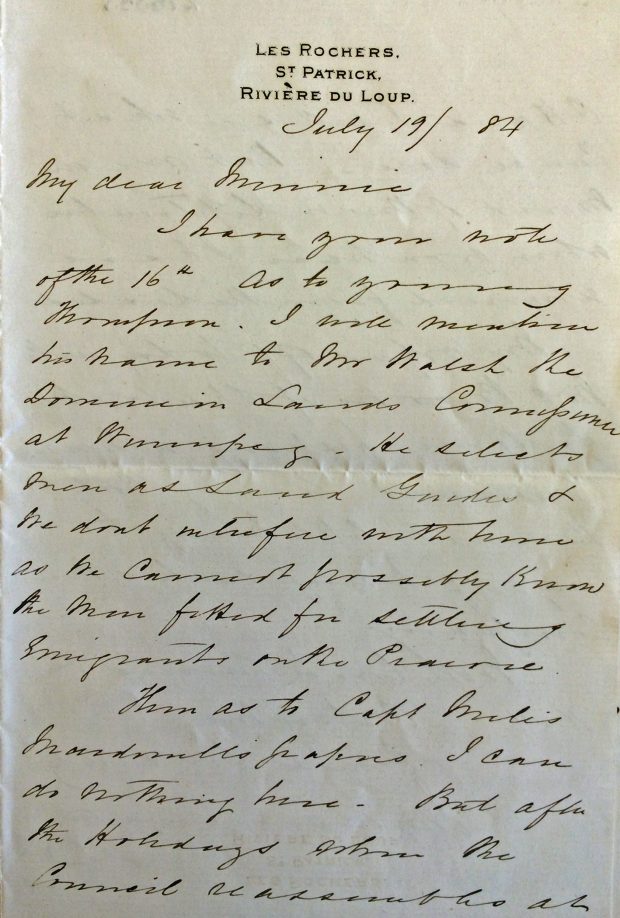 LES ROCHERS,
ST PATRICK,
RIVIÈRE DU LOUP.
July 19/84
My dear Minnie
I have your note
of the 16th As to young
Thompson. I will mention
his name to Mr Walsh the
Dominion Lands Commissioner
at Winnipeg - He selects
men as Land Guides &
We dont interfere with him
as We Cannot possibly Know
the Men fitted for settling
Emigrants on the Prairie
Then as to Capt Miles
Macdonells papers I can
do nothing here - But after
the Holidays when the
Council reassembles at